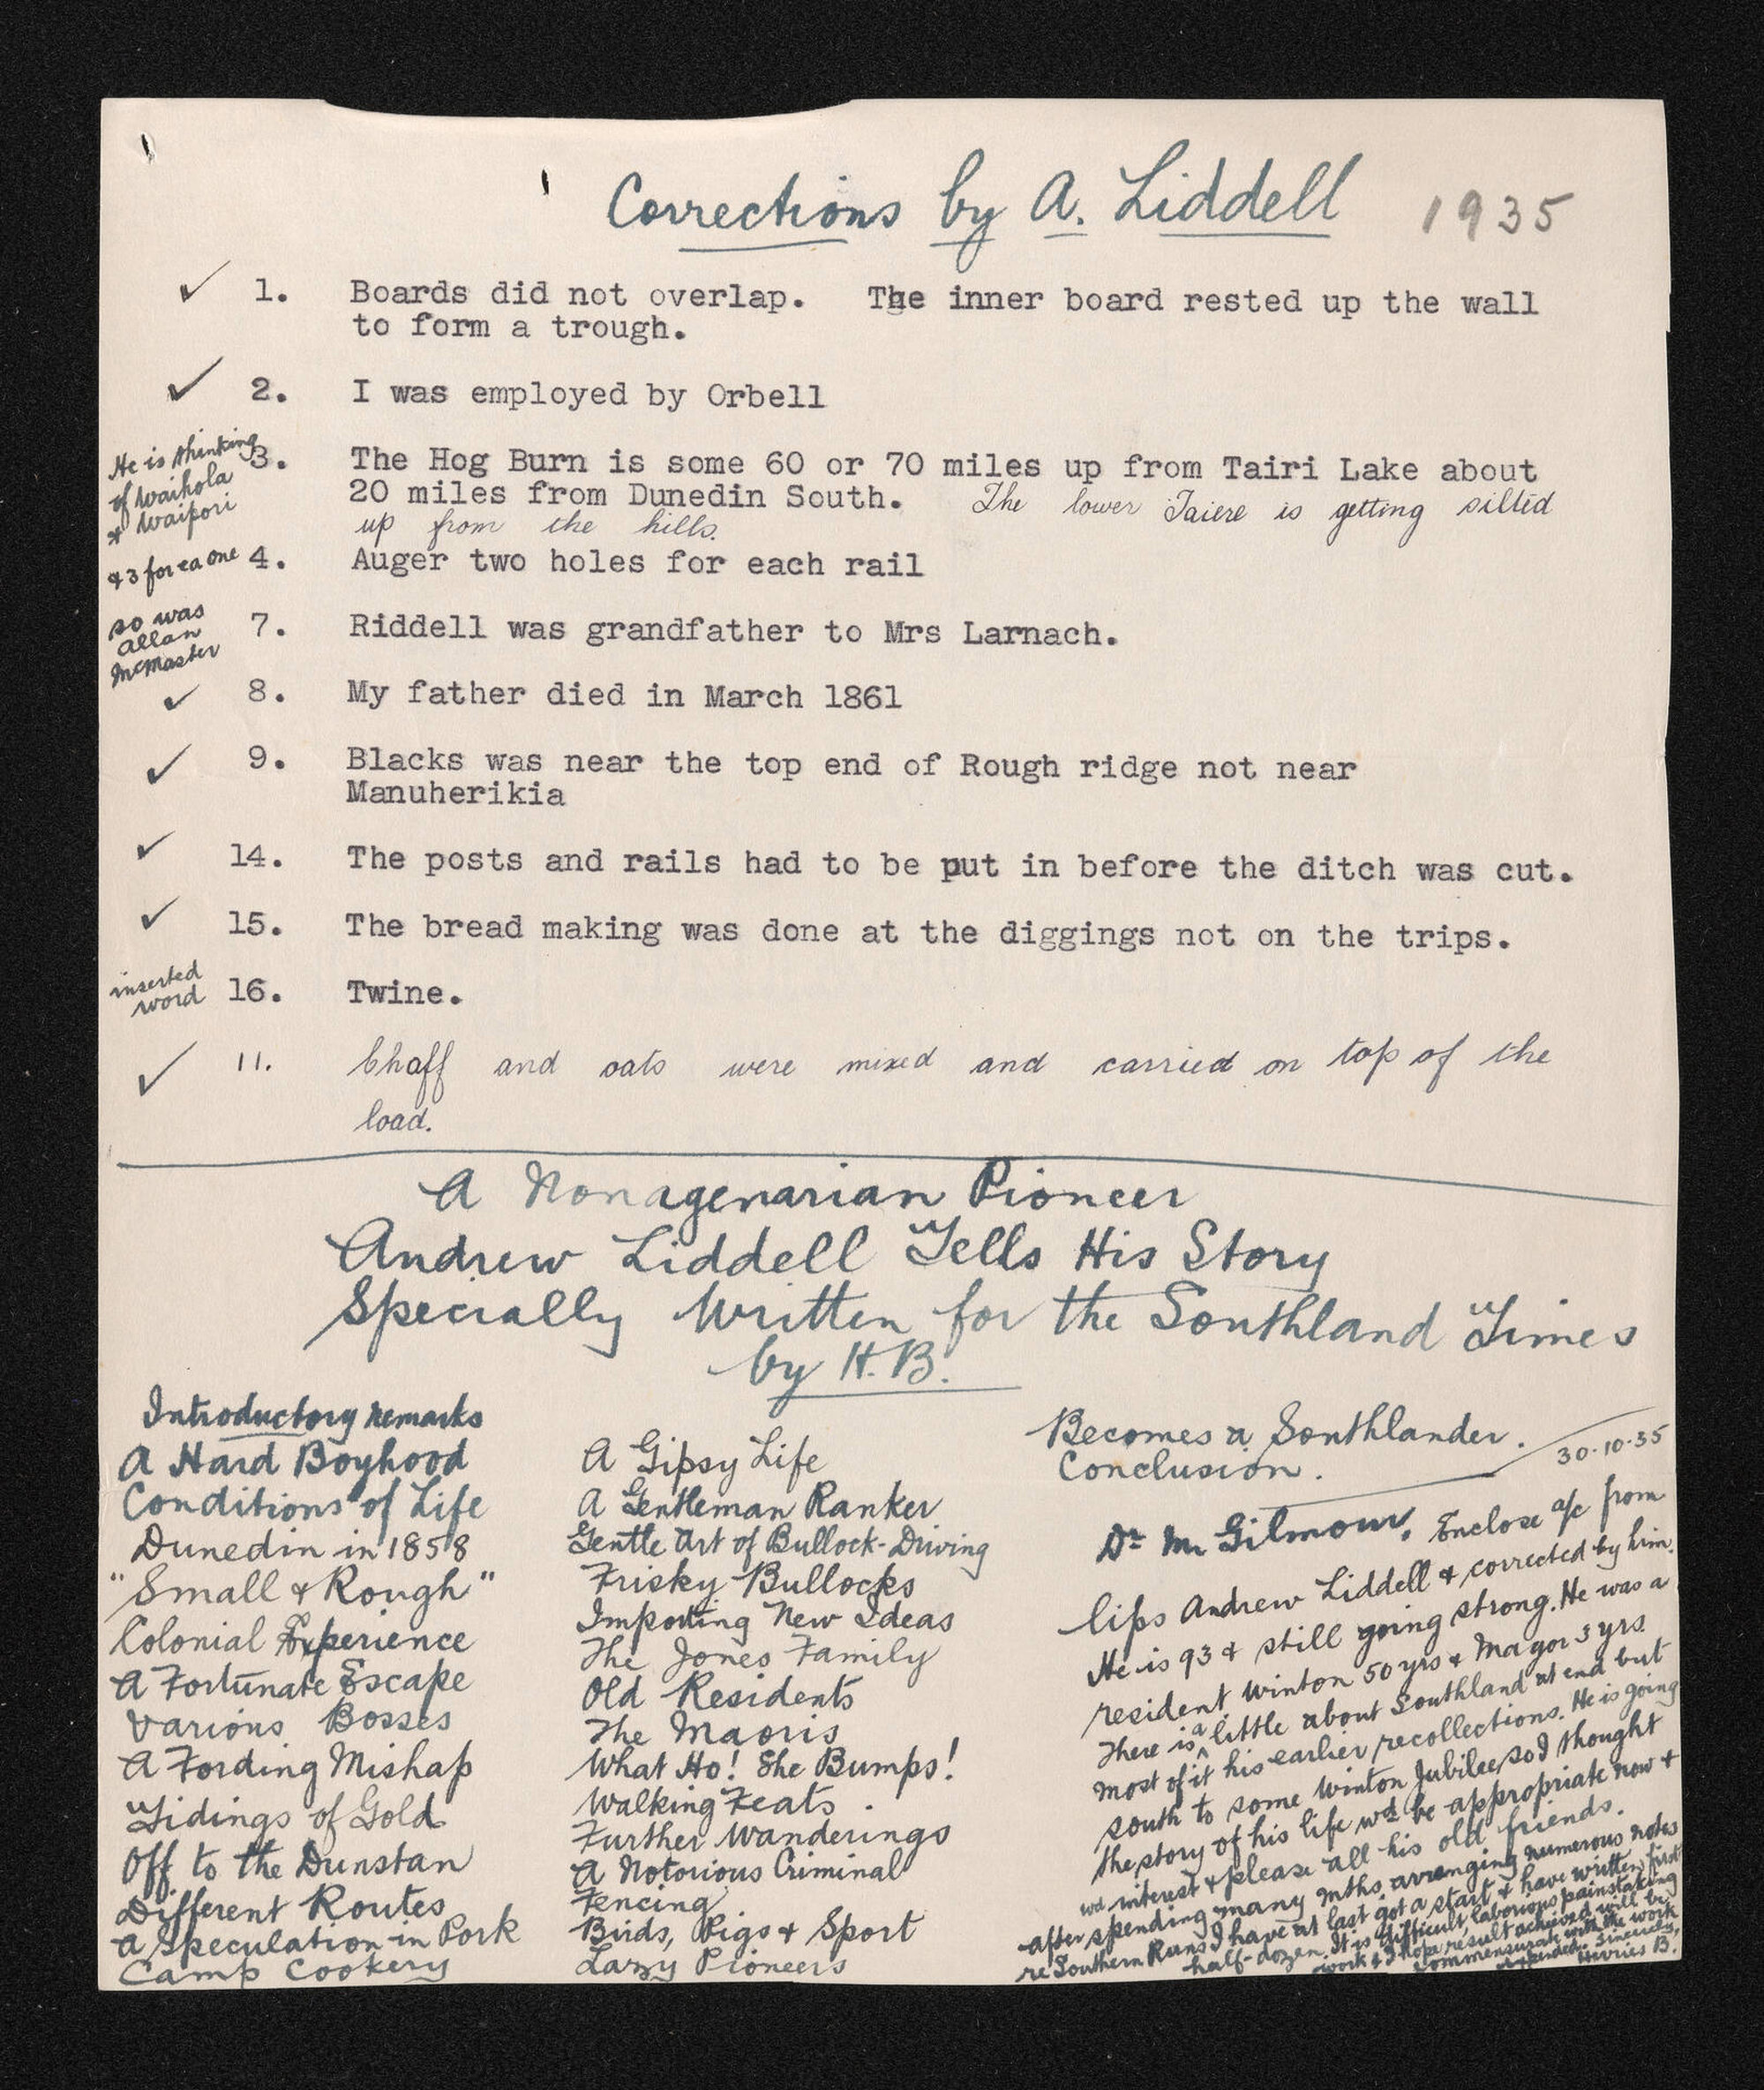 Corrections by A. Liddell 1935
✓ 1. Boards did not overlap. The inner board rested up the wall
to form a trough.
✓ 2. I was employed by Orbell
He is thinking
of Waihola
& Waipori
3. The Hog Burn is some 60 or 70 miles up from Tairi Lake about
20 miles from Dunedin South. The lower Taiere is getting silted
up from the hills.
& 3 for ea one 4. Auger two holes for each rail
so was
Allan
McMaster
7. Riddell was grandfather to Mrs Larnach.
✓ 8. My father died in March 1861
✓ 9. Blacks was near the top end of Rough ridge not near
Manuherikia
✓ 14. The posts and rails had to be put in before the ditch was cut.
✓ 15. The bread making was done at the diggings not on the trips.
inserted
word
16. Twine.
✓ 11. Chaff and oats were mixed and carried on top of the
load.
A Nonagenarian Pioneer
Andrew Liddell Tells His Story
Specially Written for the Southland Times
by H.B.
Introductory Remarks
A Hard Boyhood
Conditions of Life
Dunedin in 1858
"Small & Rough"
Colonial Experience
A Fortunate Escape
Various Bosses
A Fording Mishap
Tidings of Gold
Off to the Dunstan
Different Routes
A Speculation in Pork
Camp Cookery
A Gipsy Life
A Gentleman Ranker
Gentle Art of Bullock-Driving
Frisky Bullocks
Importing New Ideas
The Jones Family
Old Residents
The Maoris
What Ho! She Bumps!
Walking Feats.
Further Wanderings
A Notorious Criminal
Fencing
Birds, Pigs & Sport
Lazy Pioneers
Becomes a Southlander.
Conclusion.
30.10.35
Dr M Gilmour. Enclose a/c from
lips Andrew Liddell & corrected by him.
He is 93 & still going strong. He was a
resident Winton 50 yrs & Mayor 3 yrs.
There is a little about Southland at end but
most of it his earlier recollections. He is going
south to some Winton Jubilee, so I thought
the story of his life wd be appropriate now &
wd interest & please all his old friends.
After spending many mths arranging numerous notes
re Southern Runs I have at last got a start & have written first
half-dozen. It is difficult, laborious, painstaking
work & I hope result achieved will be
commensurate with the work
expended. Sincerely,
Herries B.